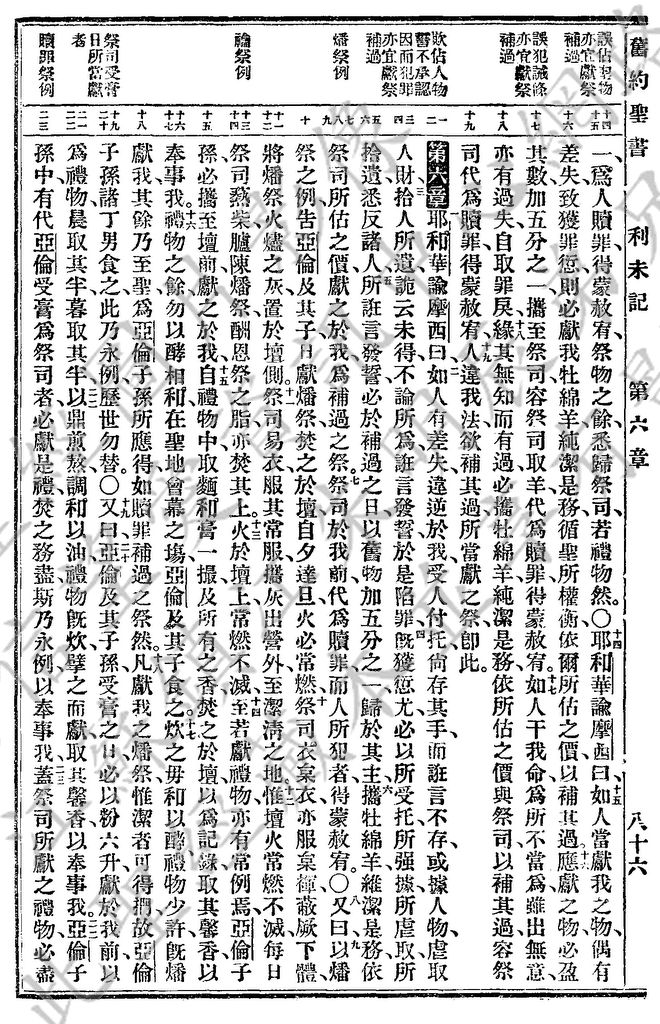 舊約聖書 利未記 第六章 八十六
誤佔聖物亦宜獻祭補過
誤犯誡條亦宜獻祭補過
欺佔人物誓不承認因而犯罪亦宜獻祭補過
燔祭例
禴祭例
祭司受膏日所當獻者
贖罪祭例
一、爲人贖罪、得蒙赦宥、祭物之餘、悉歸祭司、若禮物然。〇十四耶和華諭摩西曰、十五如人當獻我之物、偶有
差失、致獲罪愆、則必獻我牡綿羊純潔是務、循聖所權衡、依爾所估之價、以補其過、十六應獻之物、必盈
其數、加五分之一、攜至祭司、容祭司取羊、代爲贖罪、得蒙赦宥。十七如人干我命、爲所不當爲、雖出無意、
亦有過失、自取罪戾、十八緣其無知而有過、必攜牡綿羊純潔是務、依所估之價、與祭司、以補其過、容祭
司代爲贖罪、得蒙赦宥、十九人違我法、欲補其過、所當獻之祭卽此。
第六章 一耶和華諭摩西曰、二如人有差失、違逆於我、受人付托、尙存其手、而誑言不存、或據人物、虐取
人財、三拾人所遺、詭云未得、不論所爲、誑言發誓、於是陷罪、四旣獲愆尤、必以所受托、所強據、所虐取、所
拾遺、悉反諸人、五所誑言發誓、必於補過之日、以舊物加五分之一、歸於其主、六攜牡綿羊、維潔是務、依
祭司所估之價、獻之於我、爲補過之祭、七祭司於我前、代爲贖罪、而人所犯者、得蒙赦宥。〇八又曰、九以燔
祭之例、告亞倫及其子曰、燔祭焚之於壇、自夕達旦、火必常燃、十祭司衣枲衣、亦服枲褌、蔽厥下體、
將燔祭火燼之灰、置於壇側。十一祭司易衣、服其常服、攜灰出營外、至潔淸之地。十二惟壇火常燃不滅、每日
祭司爇柴臚陳燔祭、酬恩祭之脂、亦焚其上、十三火於壇上、常燃不滅。十四至若獻禮物、亦有常例焉、亞倫子
孫必攜至壇前、獻之於我、十五自禮物中、取麵和膏一撮、及所有之香、焚之於壇、以爲記錄、取其馨香、以
奉事我。十六禮物之餘、勿以酵相和、在聖地會幕之塲、亞倫及其子食之、十七炊之毋和以酵、禮物少許、旣燔
獻我、其餘乃至聖、爲亞倫子孫所應得、如贖罪補過之祭然。十八凡獻我之燔祭、惟潔者可得捫、故亞倫
子孫、諸丁男食之、此乃永例、歷世勿替。〇十九又曰、二十亞倫及其子孫受膏之日、必以粉六升、獻於我前、以
爲禮物、晨取其半、暮取其半、二一以鼎煎熬、調和以油、禮物旣炊、擘之而獻、取其馨香、以奉事我。二二亞倫子
孫中、有代亞倫受膏爲祭司者、必獻是禮、焚之務盡、斯乃永例、以奉事我、二三蓋祭司所獻之禮物、必盡